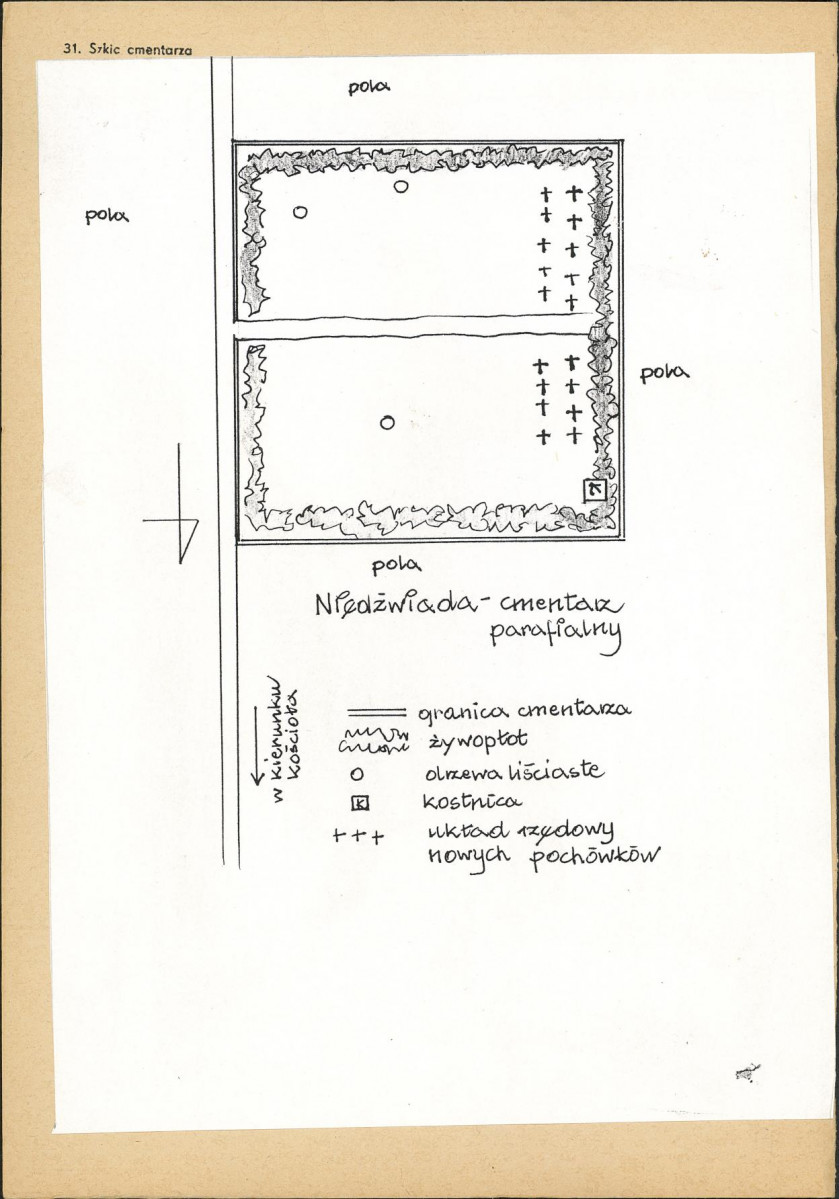 31. Szkic cmentarza
pola
pola
pola
K
pola
Niedźwiada - cmentarz
parafialny
w kierunku
kościoła
granica cmentarza
żywopłot
drzewa liściaste
K kostnica
układ rzędowy
nowych pochówków